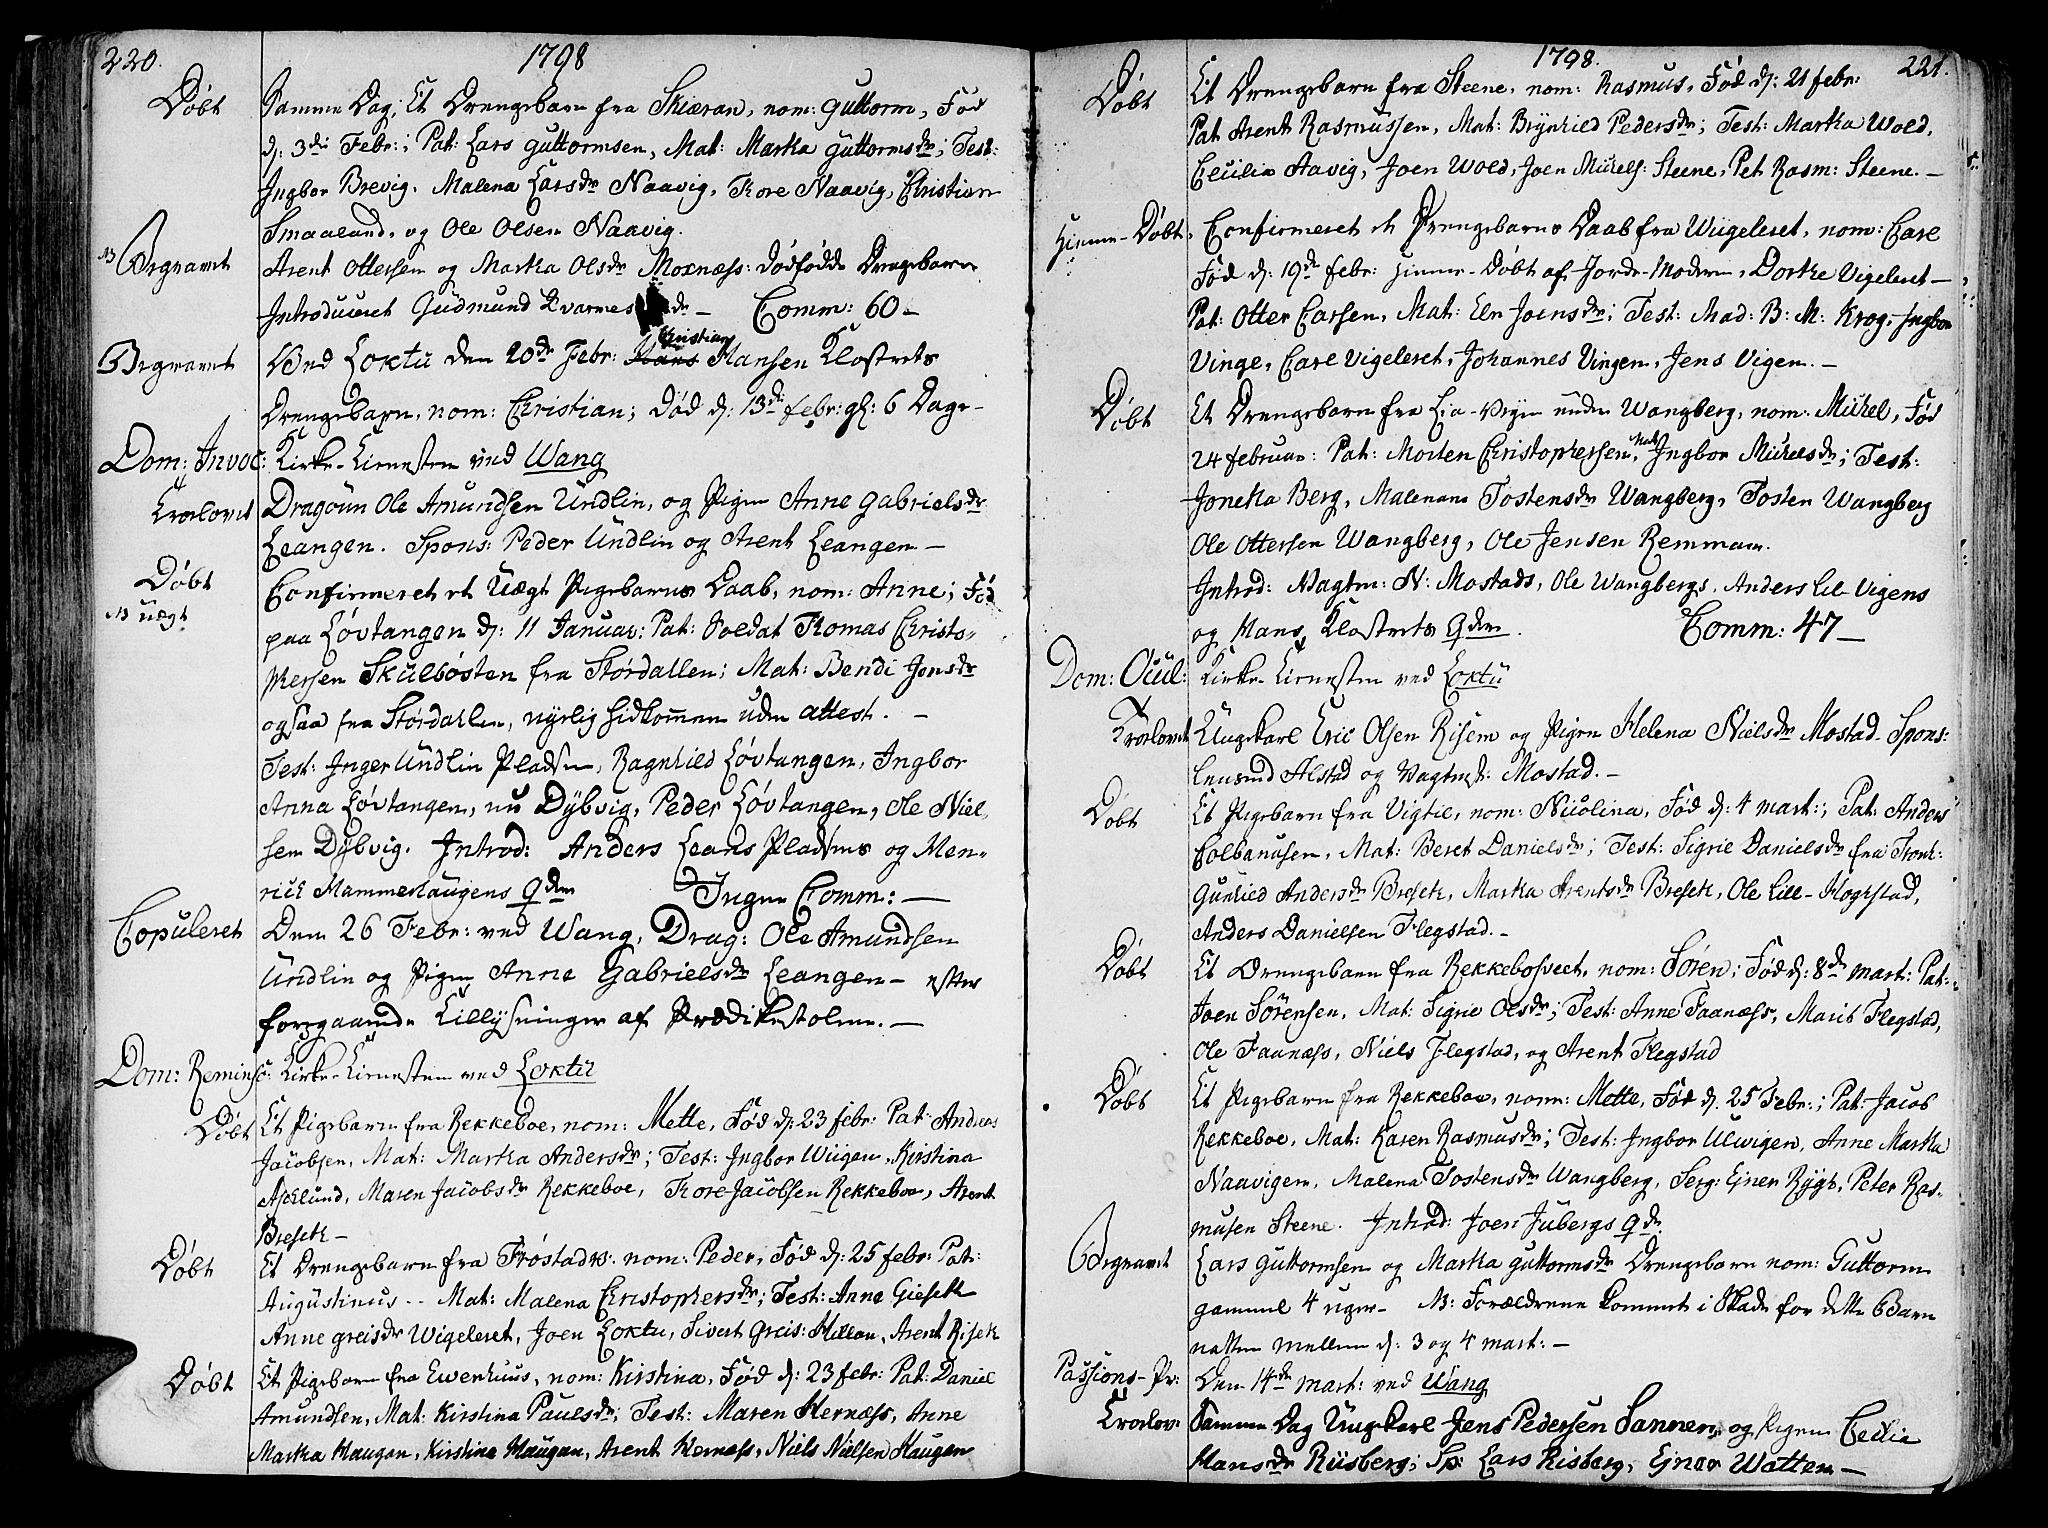 220.
1798
Döbt
Samme Dag; Et Drengebarn fra Skieran, nom: Guttorm, Föd
d: 3di Febr:; Pat: Lars Guttormsen, Mat: Marta Guttormsdr; Test:
Ingbor Brevig, Malena Larsdr Naavig, Tore Naavig, Christian
Smaaland, og Ole Olsen Naavig.
NB Begravet
Arent Ottersen og Marta Olsdr Moxness: dödfödde Drengebarn
Introduceret Gudmund Kvarmes Qde – Comm: 60 –
Begravet
Ved Loktu den 20de Febr: Christian Hansen Klostrets
Drengebarn, nom: Christian; död d: 13di febr: gl: 6 Dage –
Dom: Invoc: Kirke-Tienesten ved Wang
Trolovet
Dragoun Ole Amundsen Undlin, og Pigen Anne Gabrielsdr
Leangen. Spons: Peder Undlin og Arent Leangen –
Döbt
NB uægt
Confirmeret et Uægt Pigebarns Daab, nom: Anne; Föd
paa Lövtangen d: 11 Januar: Pat: Soldat Thomas Christo-
phersen Skulbösten fra Stördallen; Mat: Bendi Jonsdr
ogsaa fra Stördallen, nylig hidkommen uden attest. –
Test: Inger Undlin Pladsen, Ragnhild Lövtangen, Ingbor
Anna Lövtangen, nu Dybvig, Peder Lövtangen, Ole Niel-
sen Dybvig. Introd: Anders Leans Pladsens og Hen-
rich Hammerhaugens Qder Ingen Comm: –
Copuleret
Den 26 Febr: ved Wang, Drag: Ole Amundsen
Undlin og Pigen Anne Gabrielsdr Leangen – efter
foregaaende Tillysninger af Prædikestolen. –
Dom: Reminisc: Kirke-Tienesten ved Loktu
Döbt
Et Pigebarn fra Rekkeboe, nom: Mette, Föd d: 23 febr: Pat: Andreas
Jacobsen, Mat: Marta Andersdr; Test: Ingbor Wiigen, Kirstina
Asklund, Maren Jacobsdr Rekkeboe, Tore Jacobsen Rekkeboe, Arent
Bresek –
Döbt
Et Drengebarn fra Fröstads: nom: Peder, Föd d: 25 febr: Pat:
Augustinus – Mat: Malena Christophersdr; Test: Anne Giesek
Anne Greisdr Wigeleret, Joen Loktu, Sivert Greis: Hillan, Arent Risek
Döbt
Et Pigebarn fra Ewenhuus, nom: Kirstina, Föd d: 23 febr: Pat: Daniel
Amundsen, Mat: Kirstina Paulsdr; Test: Maren Hernæss, Anne
Martha Haugan, Kirstina Haugan, Arent Hernæss, Niels Nielsen Haugan
1798.
221.
Döbt
Et Drengebarn fra Steene, nom: Rasmus, Föd d: 21 febr:
Pat Arent Rasmussen, Mat: Brynhild Pedersdr; Test: Martha Wold,
Cecilia Aavig, Joen Wold, Joen Mikels: Steene, Pet Rasm: Steene. –
Hjemme-Döbt
Confirmeret et Drengebarns Daab fra Wiigeleret, nom: Carl
Föd d: 19de febr: Hjemme-Döbt af Jorde-Moderen, Dorthe Vigeleret –
Pat: Otter Carlsen, Mat: Eln Joensdr; Test: Mad: B: M: Krog, Ingbor
Vinge, Carl Vigeleret, Johannes Vingen, Jens Vigen. –
Döbt
Et Drengebarn fra Lia-Vejen under Wangberg, nom: Mikel, Föd
24 februar: Pat: Morten Christophersen, Mat: Ingbor Mikelsdr; Test:
Joneta Berg, Malenana Tostensdr Wangberg, Tosten Wangberg
Ole Ottersen Wangberg, Ole Jensen Remmam.
Introd: Vagtm: N: Mostads, Ole Wangbergs, Anders Lil-Vigens
og Hans Klostrets Qder. Comm: 47 –
Dom: Ocul: Kirke-Tienesten ved Loktu
Trolovet
Ungekarl Eric Olsen Risem og Pigen Helena Nielsdr Mostad. Spons:
Lensmd Alstad og Vagtmst: Mostad. –
Döbt
Et Pigebarn fra Vigtil, nom: Nicolina, Föd d: 4 mart:, Pat: Anders
Colbanusen, Mat: Beret Danielsdr; Test: Sigrie Danielsdr fra Tronh:
Gunhild Andersdr Bresek, Marta Arentsdr Bresek, Ole Lill-Flogstad,
Anders Danielsen Flegstad. –
Döbt
Et Drengebarn fra Rekkebosveet, nom: Sören; Föd d: 8de mart: Pat:
Joen Sörensen, Mat: Sigrie Olsdr; Test: Anne Faanæss, Marit Flegstad,
Ole Faanæss, Niels Flegstad, og Arent Flegstad
Döbt
Et Pigebarn fra Rekkeboe, nom: Mette, Föd d: 25 Febr:; Pat: Jacob
Rekkeboe, Mat: Karen Rasmusdr; Test: Ingbor Ulvigen, Anne Martha
Naavigen, Malena Tostensdr Wangberg, Serg: Ejner Rygt, Peter Ras-
musen Steene. Introd: Joen Jubergs Qde
Begravet
Lars Guttormsen og Martha Guttormsdr Drengebarn nom: Guttorm
gammel 4 uger – NB: Forældrene kommet i Skade for dette Barn
natten mellem d: 3 og 4 mart: –
Passions-Pr:
Den 14de mart: ved Wang
Trolov:
Samme Dag Ungekarl Jens Pedersen Sannen, og Pigen Cecilia
Hansdr Riisberg; Sp: Lars Risberg, Ejner Watten –